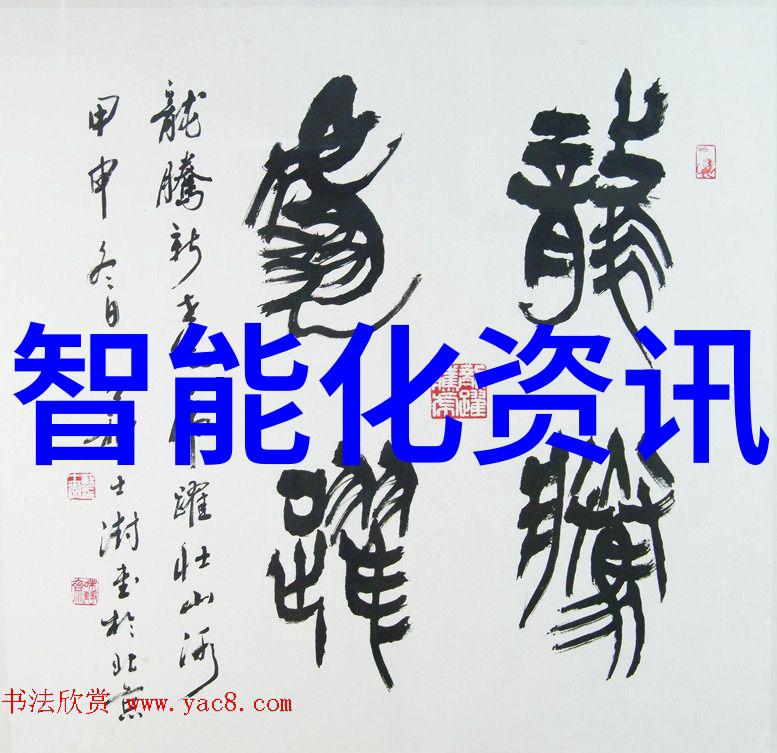 龍騰
虎躍
龍騰新躍壯山河
甲申冬日士澍書於北京
智能化资讯
书法欣赏 www.yac8.com